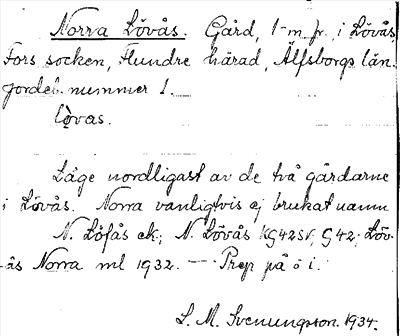 Norra Lövås. Gård, 1-m fr. i Lövås,
Fors socken, Flundre härad, Älfsborgs län.
Jordeb. nummer 1.
lòvas.
Läge nordligast av de två gårdarne
i Lövås. Norra vanligtvis ej brukat namn
N. Löfås ek; N. Lövås KG42SV, G42; Löv-
ås Norra ml 1932. — Prep på ö i.
S. M. Svenungson. 1934.